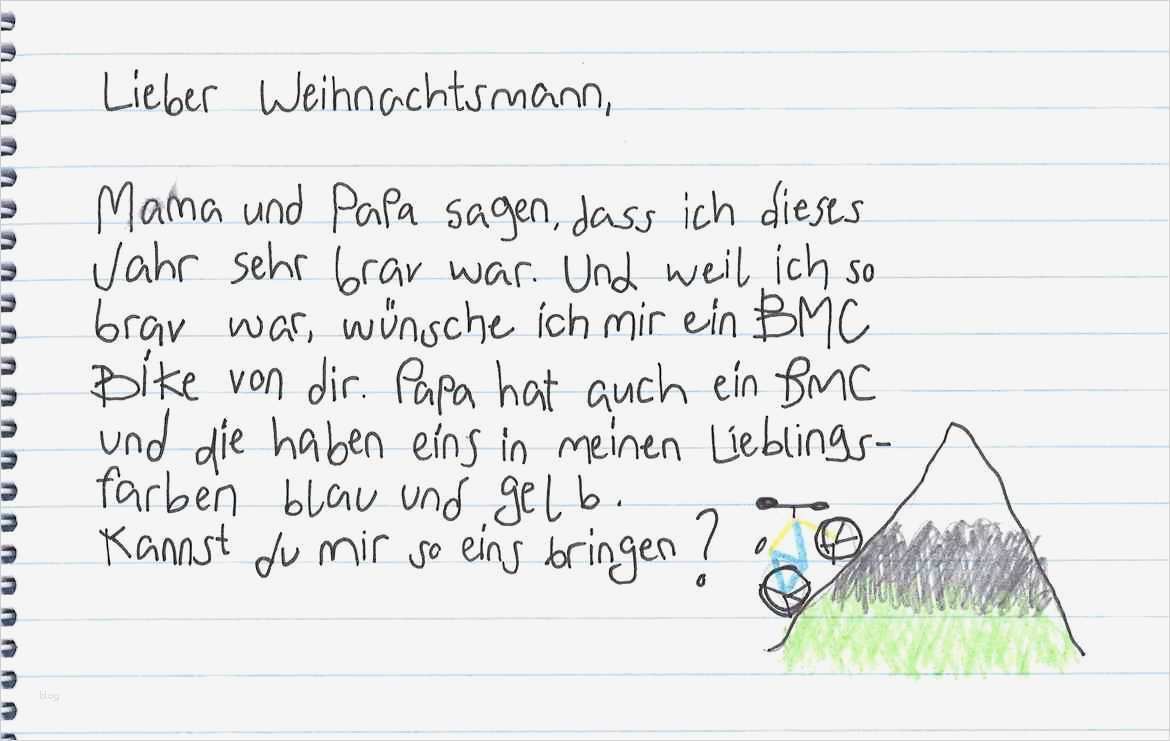 Lieber Weihnachtsmann,
Mama und Papa sagen, dass ich dieses
Jahr sehr brav war. Und weil ich so
brav war, wünsche ich mir ein BMC
Bike von dir. Papa hat auch ein BMC
und die haben eins in meinen Lieblings-
farben blau und gelb.
Kannst du mir so eins bringen?
blog